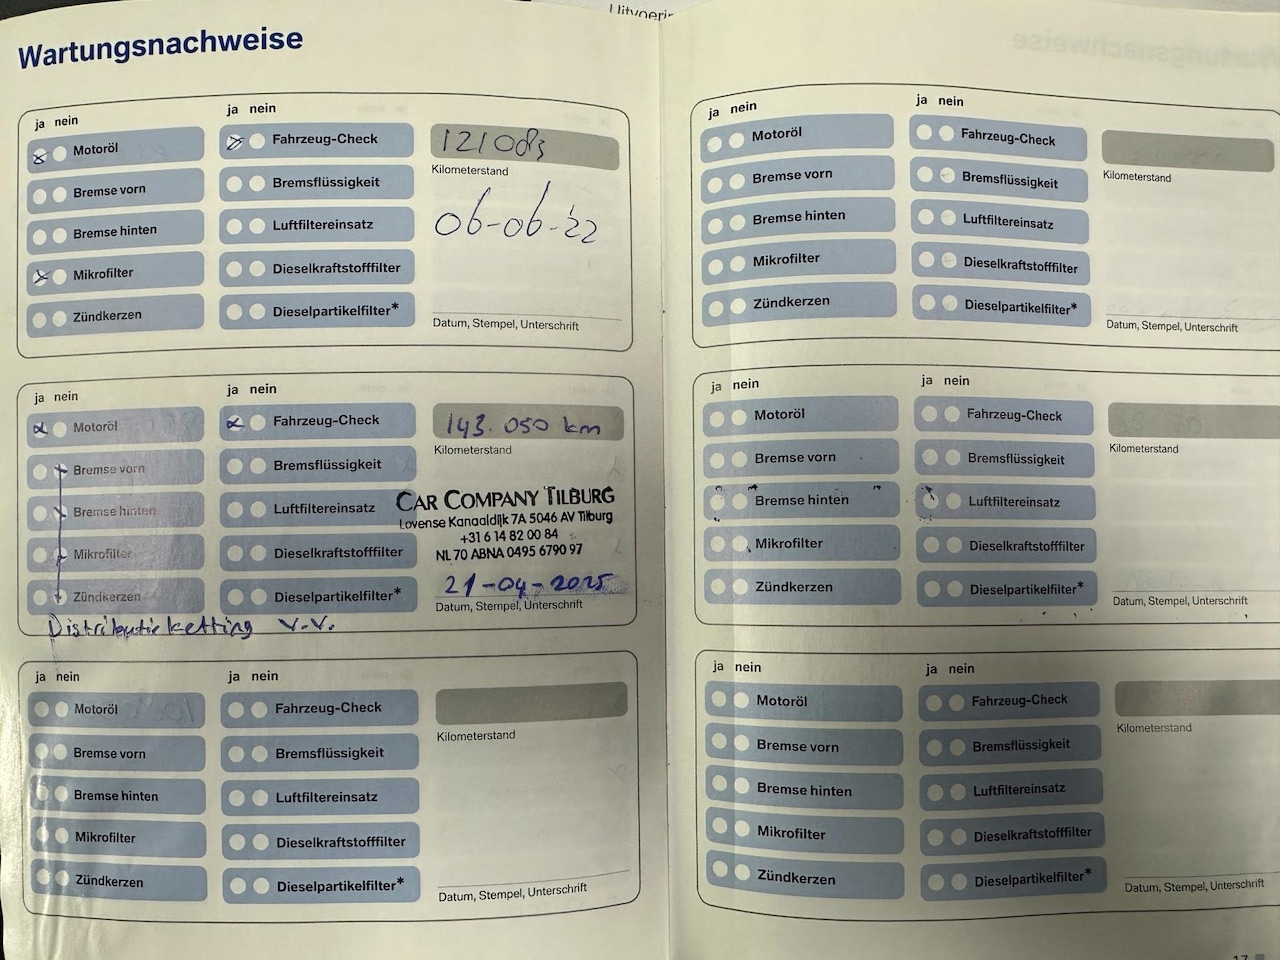 Wartungsnachweise
ja nein
ja nein
Motoröl
Bremse vorn
Bremse hinten
Mikrofilter
Zündkerzen
Fahrzeug-Check
Bremsflüssigkeit
Luftfiltereinsatz
Dieselkraftstofffilter
Dieselpartikelfilter*
121083
Kilometerstand
06-06-'22
Datum, Stempel, Unterschrift
ja nein
ja nein
Motoröl
Bremse vorn
Bremse hinten
Mikrofilter
Zündkerzen
Fahrzeug-Check
Bremsflüssigkeit
Luftfiltereinsatz
Dieselkraftstofffilter
Dieselpartikelfilter*
143.050 km
Kilometerstand
CAR COMPANY TILBURG
Lovense Kanaaldijk 7A 5046 AV Tilburg
+31 6 14 82 00 84
NL 70 ABNA 0495 6790 97
21-04-2025
Datum, Stempel, Unterschrift
Distributieketting v.v.
ja nein
ja nein
Motoröl
Bremse vorn
Bremse hinten
Mikrofilter
Zündkerzen
Fahrzeug-Check
Bremsflüssigkeit
Luftfiltereinsatz
Dieselkraftstofffilter
Dieselpartikelfilter*
Kilometerstand
Datum, Stempel, Unterschrift
ja nein
ja nein
Motoröl
Bremse vorn
Bremse hinten
Mikrofilter
Zündkerzen
Fahrzeug-Check
Bremsflüssigkeit
Luftfiltereinsatz
Dieselkraftstofffilter
Dieselpartikelfilter*
Kilometerstand
Datum, Stempel, Unterschrift
ja nein
ja nein
Motoröl
Bremse vorn
Bremse hinten
Mikrofilter
Zündkerzen
Fahrzeug-Check
Bremsflüssigkeit
Luftfiltereinsatz
Dieselkraftstofffilter
Dieselpartikelfilter*
Kilometerstand
Datum, Stempel, Unterschrift
ja nein
ja nein
Motoröl
Bremse vorn
Bremse hinten
Mikrofilter
Zündkerzen
Fahrzeug-Check
Bremsflüssigkeit
Luftfiltereinsatz
Dieselkraftstofffilter
Dieselpartikelfilter*
Kilometerstand
Datum, Stempel, Unterschrift